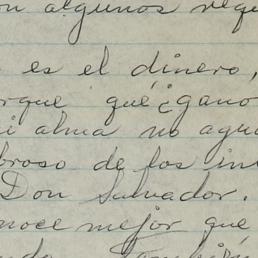 algunos
es el dinero,
que ¿gano
alma no
broso de los
Don Salvador.
mejor que